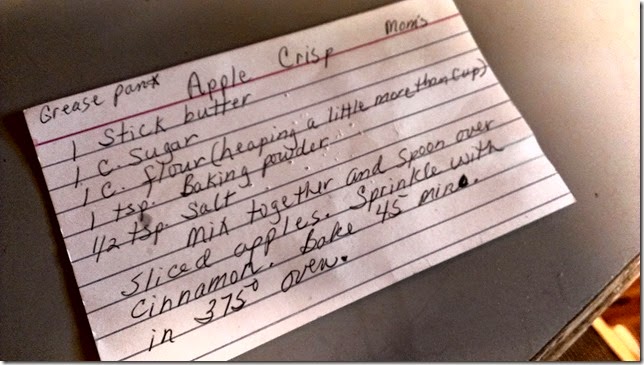 Grease pan* Apple Crisp Mom's
1 stick butter
1 c. sugar
1 c. flour (heaping a little more than cup)
1 tsp. Baking powder
1/2 tsp. salt
Mix together and spoon over
sliced apples. Sprinkle with
cinnamon. Bake 45 min.
in 375° oven.